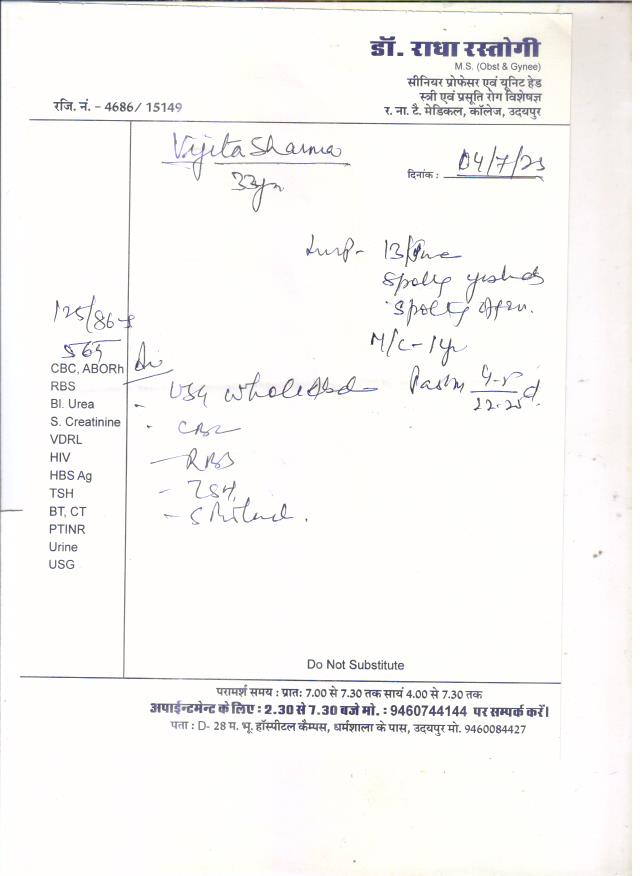 डॉ. राधा रस्तोगी
M.S. (Obst & Gynee)
सीनियर प्रोफेसर एवं यूनिट हेड
स्त्री एवं प्रसूति रोग विशेषज्ञ
र. ना. टै. मेडिकल, कॉलेज, उदयपुर
रजि. नं. - 4686/ 15149
Vijita Sharma
33yr
दिनांक : 04/7/23
Lmp - 13/June
M/C - 1yr
125/86
Past M 4-5
22-25 d
CBC, ABORh
RBS
Bl. Urea
S. Creatinine
VDRL
HIV
HBS Ag
TSH
BT, CT
PTINR
Urine
USG
USG whole Abd
- CBC
- RBS
- TSH
Do Not Substitute
परामर्श समय : प्रात: 7.00 से 7.30 तक सायं 4.00 से 7.30 तक
अपाईन्टमेन्ट के लिए : 2.30 से 7.30 बजे मो. : 9460744144 पर सम्पर्क करें।
पता : D- 28 म. भू. हॉस्पीटल कैम्पस, धर्मशाला के पास, उदयपुर मो. 9460084427